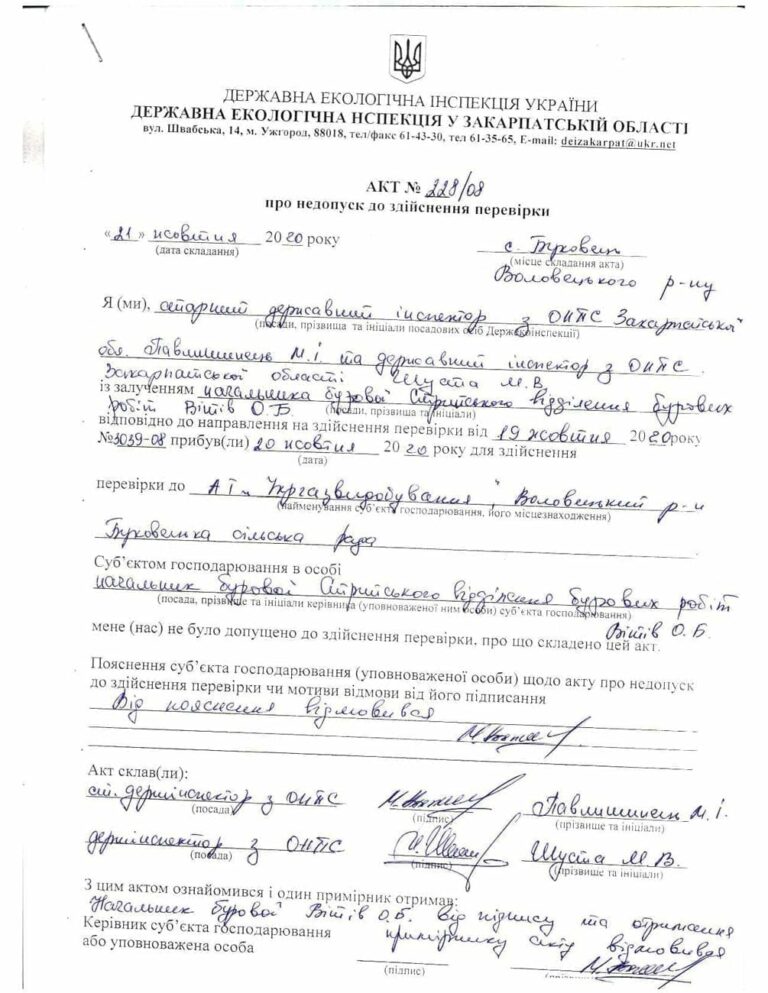 ДЕРЖАВНА ЕКОЛОГІЧНА ІНСПЕКЦІЯ УКРАЇНИ
ДЕРЖАВНА ЕКОЛОГІЧНА НСПЕКЦІЯ У ЗАКАРПАТСЬКІЙ ОБЛАСТІ
вул. Швабська, 14, м. Ужгород, 88018, тел/факс 61-43-30, тел 61-35-65, E-mail: deizakarpat@ukr.net
АКТ № 228/08
про недопуск до здійснення перевірки
«21» жовтня 2020 року с. Буковець
(дата складання) (місце складання акта)
Воловецького р-ну
Я (ми), старший державний інспектор з ОНПС Закарпатської
(посади, прізвища та ініціали посадових осіб Держекоінспекції)
обл. Павлишинець М.І. та державний інспектор з ОНПС
Закарпатської області Шуста М.В.
із залученням начальника бурової Стрийського відділення бурових
робіт Вітів О.Б. (посади, прізвища та ініціали)
відповідно до направлення на здійснення перевірки від 19 жовтня 2020 року
№3039-08 прибув(ли) 20 жовтня 2020 року для здійснення
(дата)
перевірки до АТ „Укргазвидобування", Воловецький р-н
(найменування суб’єкта господарювання, його місцезнаходження)
Буковецька сільська рада
Суб’єктом господарювання в особі
начальник бурової Стрийського відділення бурових робіт
(посада, прізвище та ініціали керівника (уповноваженої ним особи) суб’єкта господарювання)
Вітів О.Б.
мене (нас) не було допущено до здійснення перевірки, про що складено цей акт.
Пояснення суб’єкта господарювання (уповноваженої особи) щодо акту про недопуск
до здійснення перевірки чи мотиви відмови від його підписання
Від пояснення відмовився
Акт склав(ли):
ст. держінспектор з ОНПС Павлишинець М.І.
(посада) (підпис) (прізвище та ініціали)
держінспектор з ОНПС Шуста М.В.
(посада) (підпис) (прізвище та ініціали)
З цим актом ознайомився і один примірник отримав:
Начальник бурової Вітів О.Б. від підпису та отримання
Керівник суб’єкта господарювання примірнику акту відмовився
або уповноважена особа
(підпис)